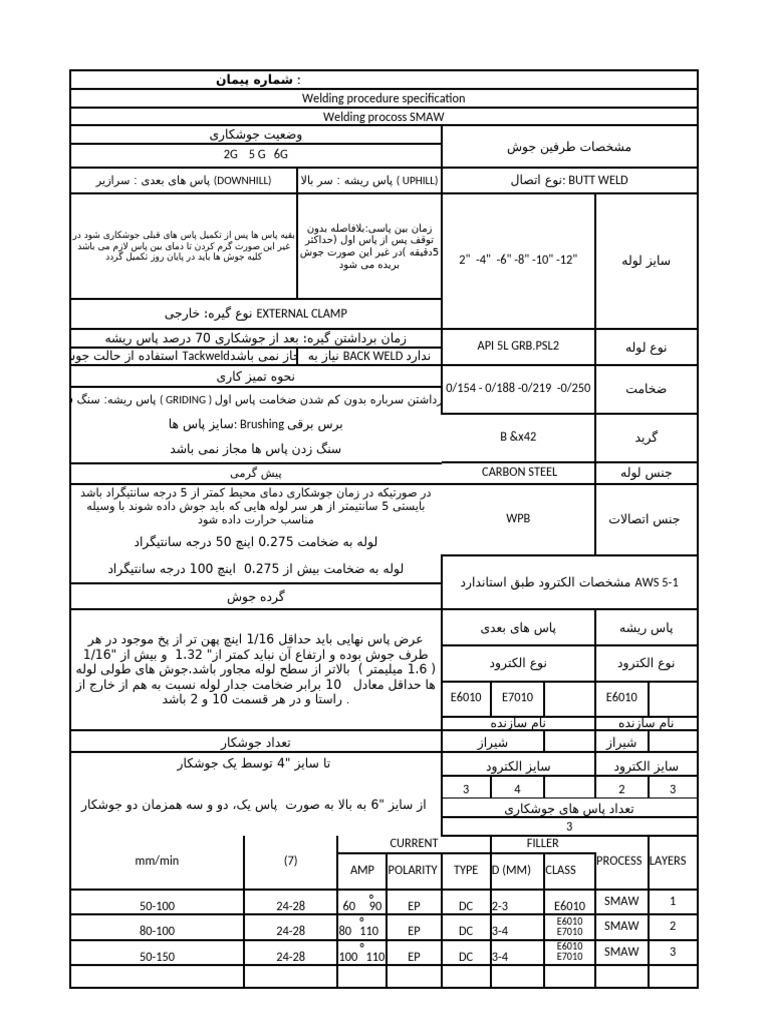 شماره پیمان :
Welding procedure specification
Welding procoss SMAW
وضعیت جوشکاری
مشخصات طرفین جوش
2G 5 G 6G
پاس های بعدی : سرازیر (DOWNHILL)
پاس ریشه : سر بالا ( UPHILL)
نوع اتصال: BUTT WELD
بقیه پاس ها پس از تکمیل پاس های قبلی جوشکاری شود در
غیر این صورت گرم کردن تا دمای بین پاس لازم می باشد
کلیه جوش ها باید در پایان روز تکمیل گردد
زمان بین پاسی:بلافاصله بدون
توقف پس از پاس اول (حداکثر
5دقیقه )در غیر این صورت جوش
بریده می شود
2" -4" -6" -8" -10" -12"
سایز لوله
نوع گیره: خارجی EXTERNAL CLAMP
زمان برداشتن گیره: بعد از جوشکاری 70 درصد پاس ریشه
API 5L GRB.PSL2
نوع لوله
استفاده از حالت جوش Tackweld مجاز نمی باشد
نیاز به BACK WELD ندارد
نحوه تمیز کاری
0/154 - 0/188 -0/219 -0/250
ضخامت
پاس ریشه: سنگ ( GRIDING ) برداشتن سرباره بدون کم شدن ضخامت پاس اول
سایز پاس ها: Brushing برس برقی
سنگ زدن پاس ها مجاز نمی باشد
B &x42
گرید
پیش گرمی
CARBON STEEL
جنس لوله
در صورتیکه در زمان جوشکاری دمای محیط کمتر از 5 درجه سانتیگراد باشد
بایستی 5 سانتیمتر از هر سر لوله هایی که باید جوش داده شوند با وسیله
مناسب حرارت داده شود
لوله به ضخامت 0.275 اینچ 50 درجه سانتیگراد
WPB
جنس اتصالات
لوله به ضخامت بیش از 0.275 اینچ 100 درجه سانتیگراد
مشخصات الکترود طبق استاندارد AWS 5-1
گرده جوش
عرض پاس نهایی باید حداقل 1/16 اینچ پهن تر از پخ موجود در هر
طرف جوش بوده و ارتفاع آن نباید کمتر از" 1.32 و بیش از "1/16
( 1.6 میلیمتر ) بالاتر از سطح لوله مجاور باشد.جوش های طولی لوله
ها حداقل معادل 10 برابر ضخامت جدار لوله نسبت به هم از خارج از
راستا و در هر قسمت 10 و 2 باشد .
پاس های بعدی
پاس ریشه
نوع الکترود
نوع الکترود
E6010 E7010 E6010
نام سازنده
نام سازنده
تعداد جوشکار
شیراز
شیراز
تا سایز "4 توسط یک جوشکار
سایز الکترود
سایز الکترود
3 4 2 3
از سایز "6 به بالا به صورت پاس یک، دو و سه همزمان دو جوشکار
تعداد پاس های جوشکاری
3
CURRENT FILLER
mm/min (7) PROCESS LAYERS
AMP POLARITY TYPE D (MM) CLASS
50-100 24-28 60 º 90 EP DC 2-3 E6010 SMAW 1
80-100 24-28 80 º 110 EP DC 3-4 E6010 E7010 SMAW 2
50-150 24-28 100 º 110 EP DC 3-4 E6010 E7010 SMAW 3